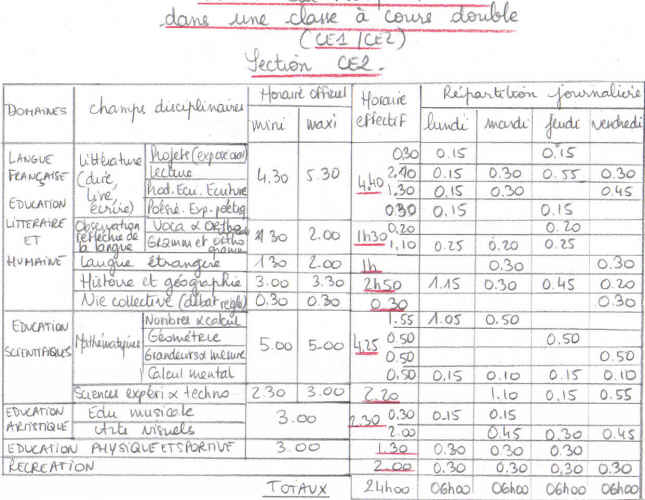 dans une classe à cours double
(CE1/CE2)
Section CE2.
DOMAINES champs disciplinaires Horaire officiel Horaire effectif Répartition journalière
mini maxi lundi mardi jeudi vendredi
LANGUE FRANÇAISE EDUCATION LITTERAIRE ET HUMAINE
Littérature (dire, lire, écrire) 4.30 5.30 4.40
Projets (exposé 0.30 0.15 0.15
Lecture 2.10 0.15 0.30 0.55 0.30
Prod. Ecri. Ecriture 1.30 0.15 0.30 0.45
Poésie. Exp. poétiq 0.30 0.15 0.15
Observation réfléchie de la langue 1.30 2.00 1h30
Voca & Ortho 0.20 0.20
Gramm et ortho gramm 1.10 0.25 0.20 0.25
Langue étrangère 1.30 2.00 1h 0.30 0.30
Histoire et géographie 3.00 3.30 2h50 1.15 0.30 0.45 0.20
Vie collective (débat réglé) 0.30 0.30 0.30 0.30
EDUCATION SCIENTIFIQUES
Mathématiques 5.00 5.00 4.25
Nombres & calcul 1.55 1.05 0.50
Géométrie 0.50 0.50
Grandeurs & mesure 0.50 0.50
Calcul mental 0.50 0.15 0.10 0.15 0.10
Sciences expéri & techno 2.30 3.00 2.20 1.10 0.15 0.55
EDUCATION ARTISTIQUE 3.00 2.30
Edu musicale 0.30 0.15 0.15
Arts visuels 2.00 0.45 0.30 0.45
EDUCATION PHYSIQUE ET SPORTIVE 3.00 1.30 0.30 0.30 0.30
RECREATION 2.00 0.30 0.30 0.30 0.30
TOTAUX 24h00 06h00 06h00 06h00 06h00